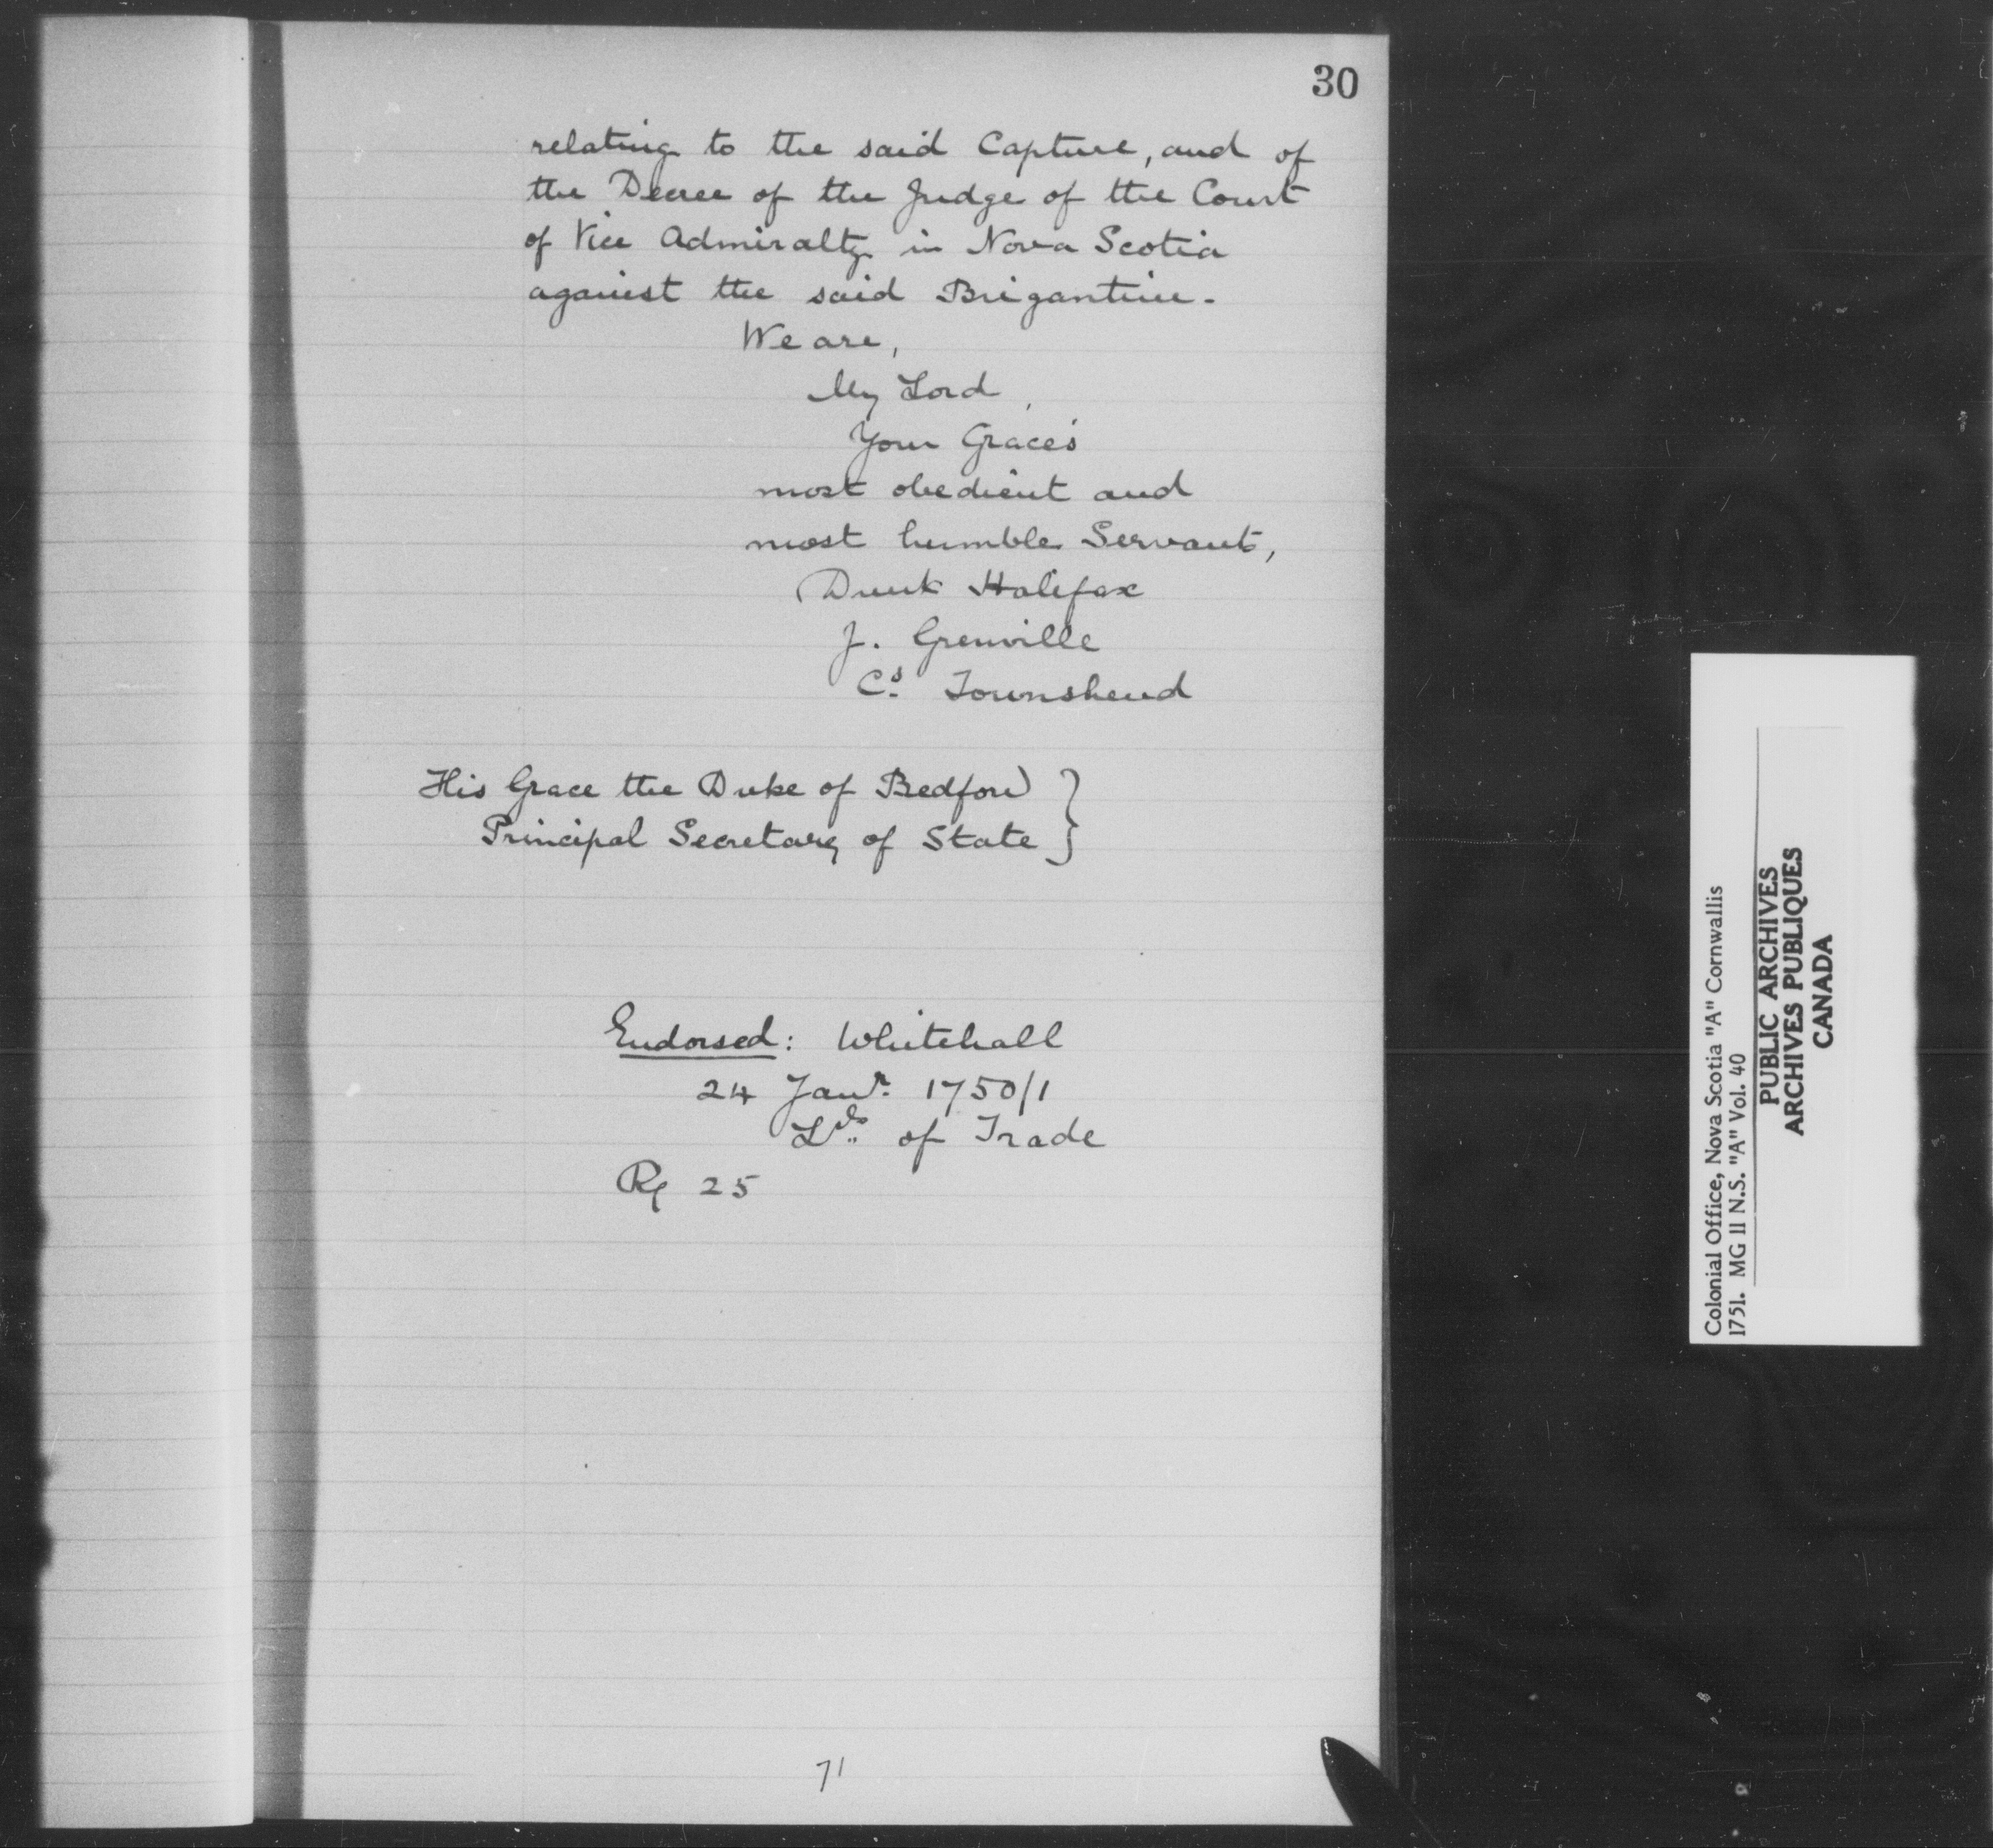 30
relating to the said Capture, and of
the Decree of the Judge of the Court
of Vice Admiralty in Nova Scotia
against the said Brigantine.
We are,
My Lord,
Your Grace's
most obedient and
most humble Servants,
Dunk Halifax
J. Grenville
Cs. Townshend
His Grace the Duke of Bedford
Principal Secretary of State }
Endorsed: Whitehall
24 Janr. 1750/1
Lds. of Trade
R 25
71
Colonial Office, Nova Scotia "A" Cornwallis
1751. MG 11 N.S. "A" Vol. 40
PUBLIC ARCHIVES
ARCHIVES PUBLIQUES
CANADA